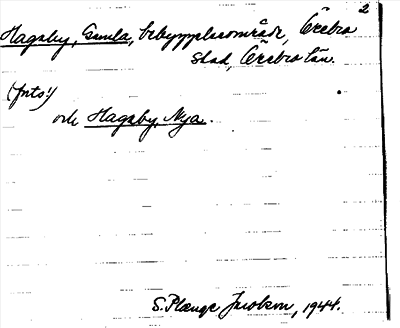 2
Hagaby, Gamla, bebyggelseområde, Örebro
stad, Örebro län.
(forts.)
och Hagaby, Nya.
S. Plaenge Jacobson, 1944.